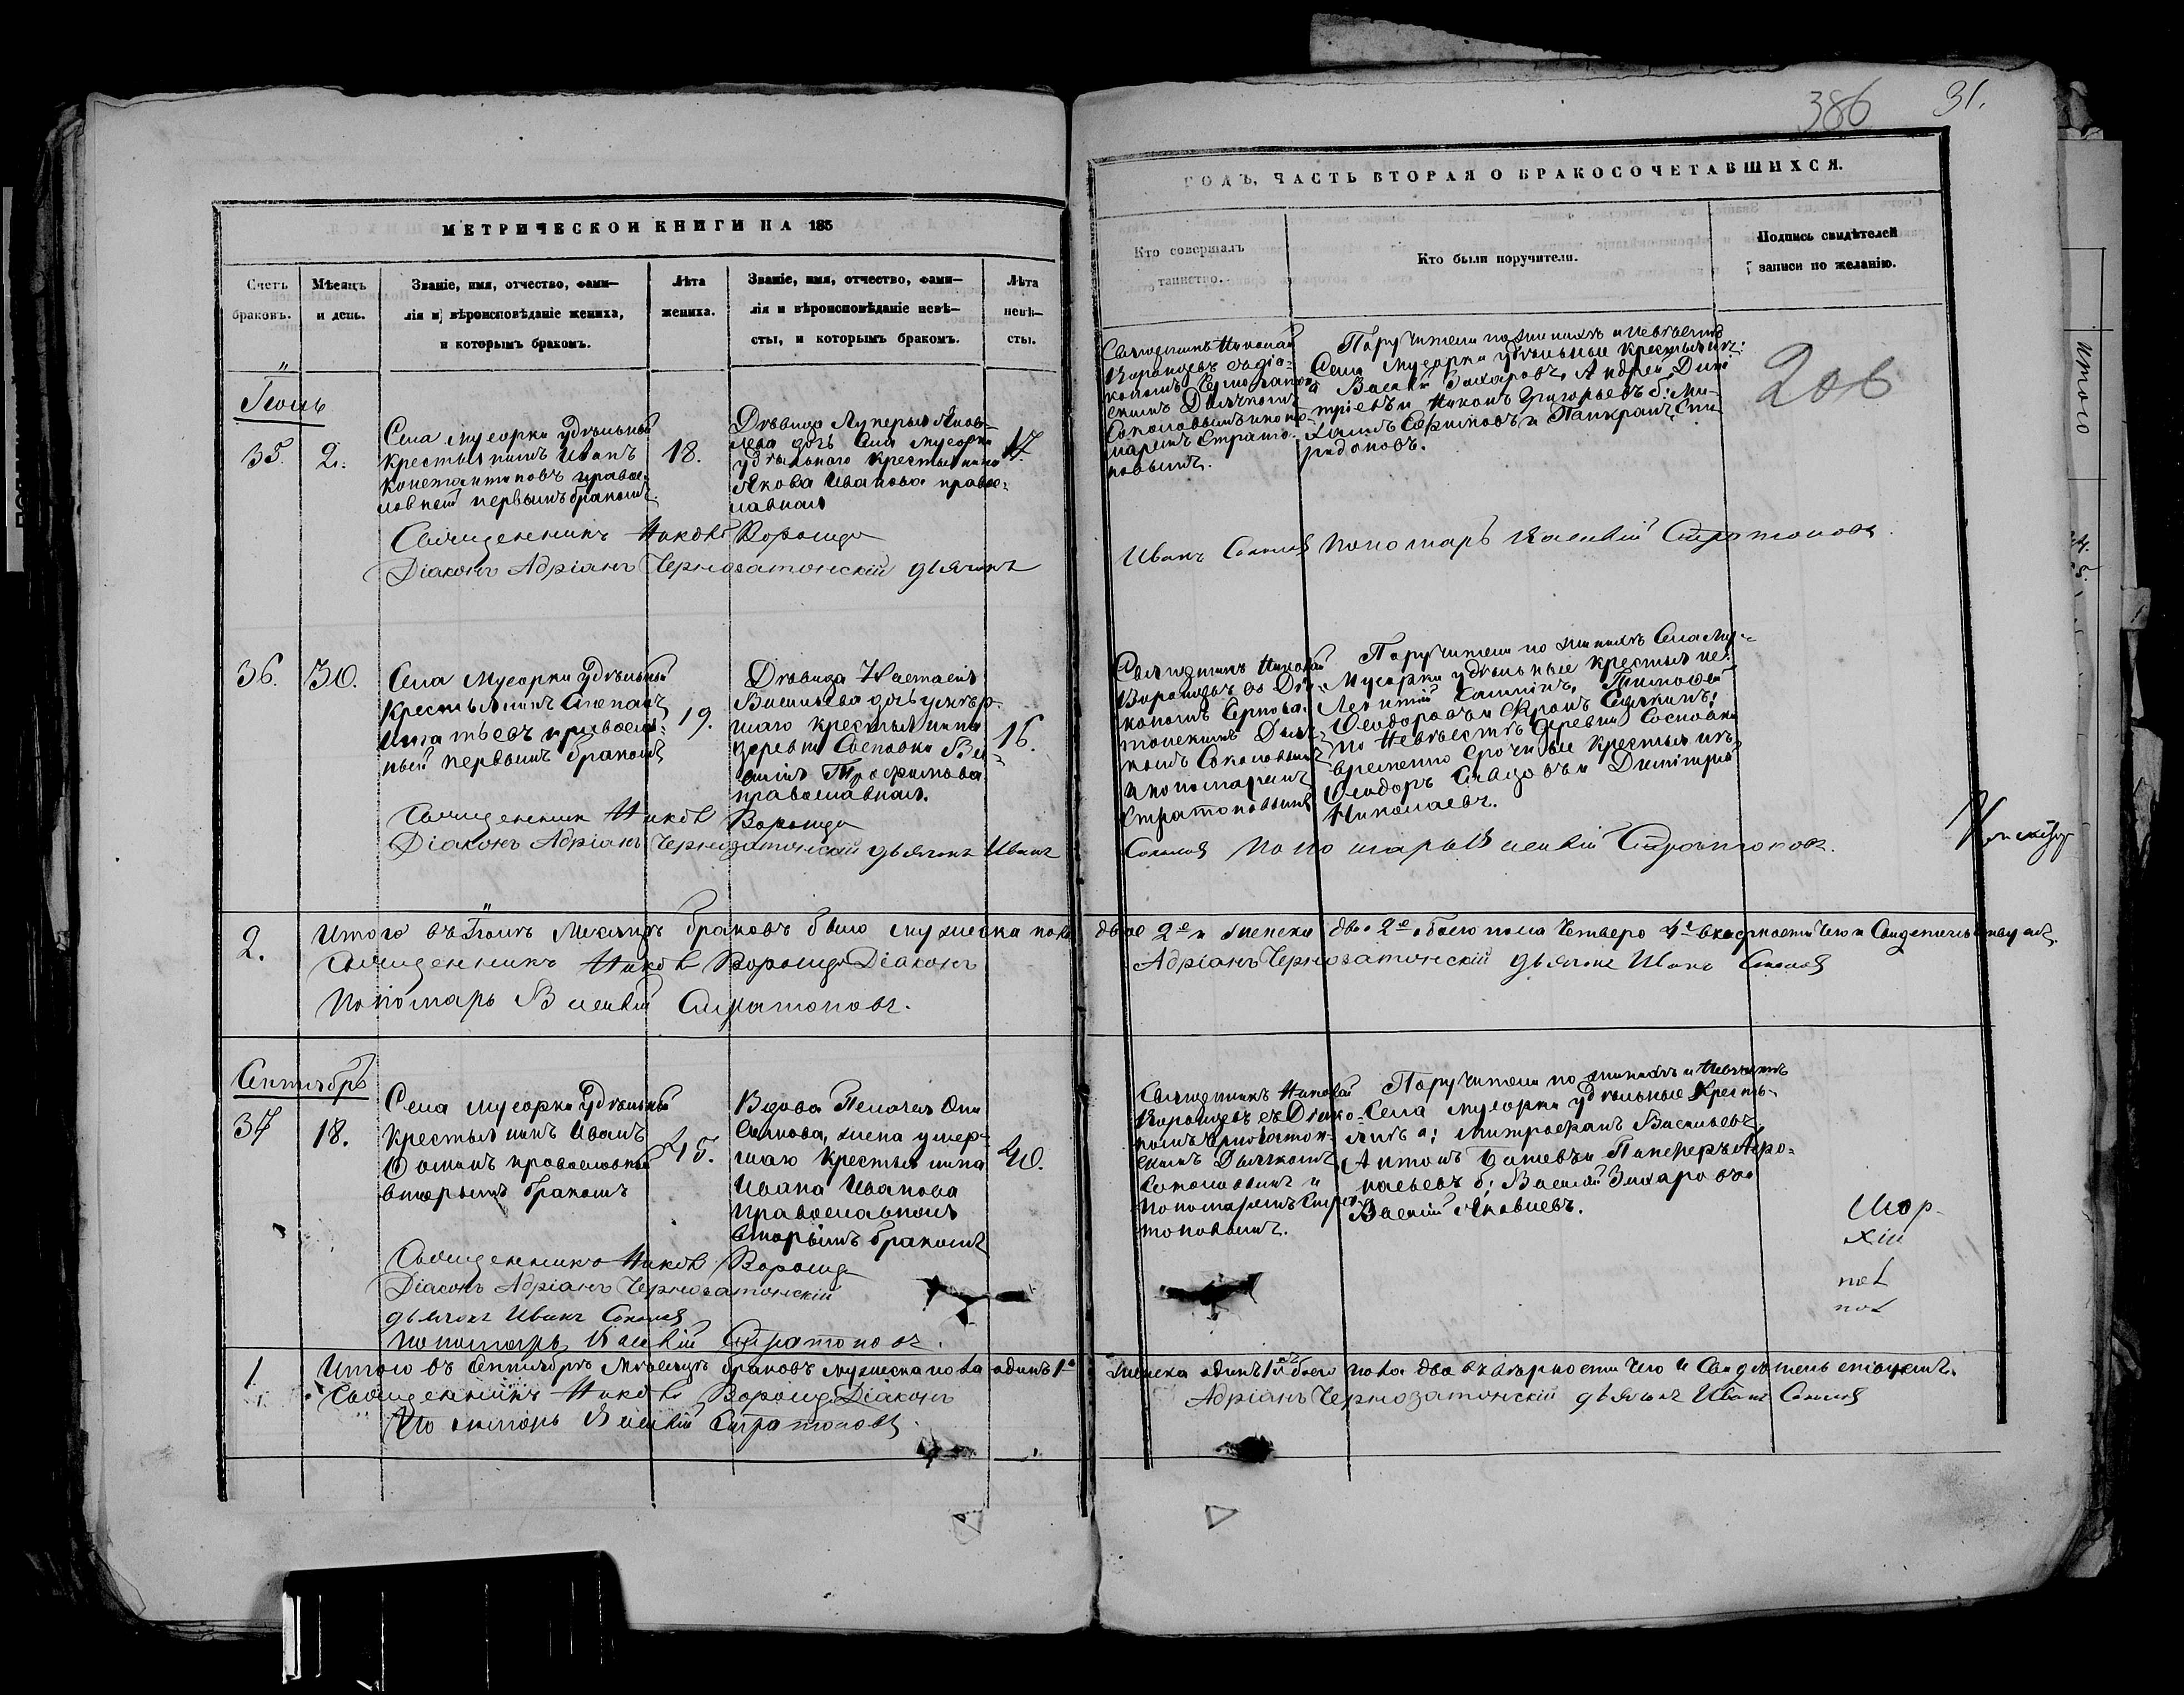 386 31.
МЕТРИЧЕСКОЙ КНИГИ НА 185
ГОДЪ, ЧАСТЬ ВТОРАЯ О БРАКОСОЧЕТАВШИХСЯ.
Счетъ
браковъ.
Мѣсяцъ
и день.
Званіе, имя, отчество, фами—
лія и вѣроисповѣданіе жениха,
и которымъ бракомъ.
Лѣта
жениха.
Званіе, имя, отчество, фами—
лія и вѣроисповѣданіе невѣ—
сты, и которымъ бракомъ.
Лѣта
невѣ—
сты.
Кто совершалъ
таинство.
Кто были поручители.
Подпись свидѣтелей
записи по желанію.
Іюнь
35.
2.
Села Мусорки удѣльный
крестьянинъ Иванъ
Константиновъ правос-
лавной первымъ бракомъ.
18.
Дѣвица Лукерья Яков-
лева дочь Села Мусорки
удѣльнаго крестьянина
Якова Иванова правос-
лавная
17.
Священникъ Николай
Воронцовъ съ діа-
кономъ Чернозатон-
скимъ Дьячкомъ
Соколовымъ и поно-
маремъ Страто-
новымъ.
Поручители по женихѣ и невѣстѣ
Села Мусорки удѣльные крестьяне:
а Василій Захаровъ, Андрей Дми
тріевъ и Никонъ Григорьевъ б: Ми-
хаилъ Ефимовъ и Панкратъ Спи
ридоновъ.
206
Священникъ Никол Воронцо
Діаконъ Адріанъ Чернозатонскій дьячокъ
Иванъ Соколов Пономарь Василій Стратоновъ.
36.
30.
Села Мусорки Удѣльный
Крестьянинъ Степанъ
Игнатьевъ православ-
ный первымъ бракомъ
19.
Дѣвица Настасія
Васильева дочь умер-
шаго крестьянина
деревни Сосновки Ва-
силія Трофимова
православная.
16.
Священникъ Николай
Воронцовъ съ Діа-
кономъ Черноза-
тонскимъ Дьяч-
комъ Соколовымъ
и пономаремъ
Стратоновымъ
Поручители по женихѣ Села Му-
Мусорки удѣльные крестьяне:
Леонтій Тимофей
Ѳеодоровъ и
по Невѣстѣ деревни Сосновки
временно срочные крестьяне
Ѳеодоръ и Димитрій
Николаевъ.
Священник Никол Воронцо
Діаконъ Адріанъ Чернозатонскій дьячокъ Иванъ
Соколов Пономарь Василій Стратоновъ.
2.
Итого въ Іюнѣ Мѣсяцѣ браковъ было мужеска пола двое 2е и женска двое 2е обоего пола четверо 4е въ вѣрности чего и Свидетельствуемъ.
Священникъ Никол Воронцо Діаконъ
Адріанъ Чернозатонскій дьячокъ Иванъ Соколов
Пономарь Василій Стратоновъ.
Сентябрь
37
18.
Села Мусорки Удѣльный
Крестьянинъ Иванъ
Ѳоминъ православной
вторымъ бракомъ
45.
Вдова Пелагея
жена умер-
шаго крестьянина
Ивана Иванова
православная
вторымъ бракомъ
40.
Священникъ Николай
Воронцовъ съ Діако-
номъ Чернозатон-
скимъ Дьячкомъ
Соколовымъ и
пономаремъ Стра-
тоновымъ.
Поручители по женихѣ и Невѣстѣ
Села Мусорки удѣльные Кресть-
янѣ а: Митрофанъ Васильевъ,
Антонъ
б: Василій Захаровъ
Василій Яковлевъ.
Священникъ Никол Воронцо
Діаконъ Адріанъ Чернозатонскій
дьячокъ Иванъ Соколов
Пономарь Василій Стратоновъ.
1.
Итого въ Сентябрѣ Мѣсяцѣ браковъ мужеска пола одинъ 1 женска одинъ 1 обоего пола два въ вѣрности чего и Свидѣтельствуемъ.
Священникъ Никол Воронцо Діаконъ
Адріанъ Чернозатонскій дьячокъ Иванъ Соколов
Пономарь Василій Стратоновъ
итого